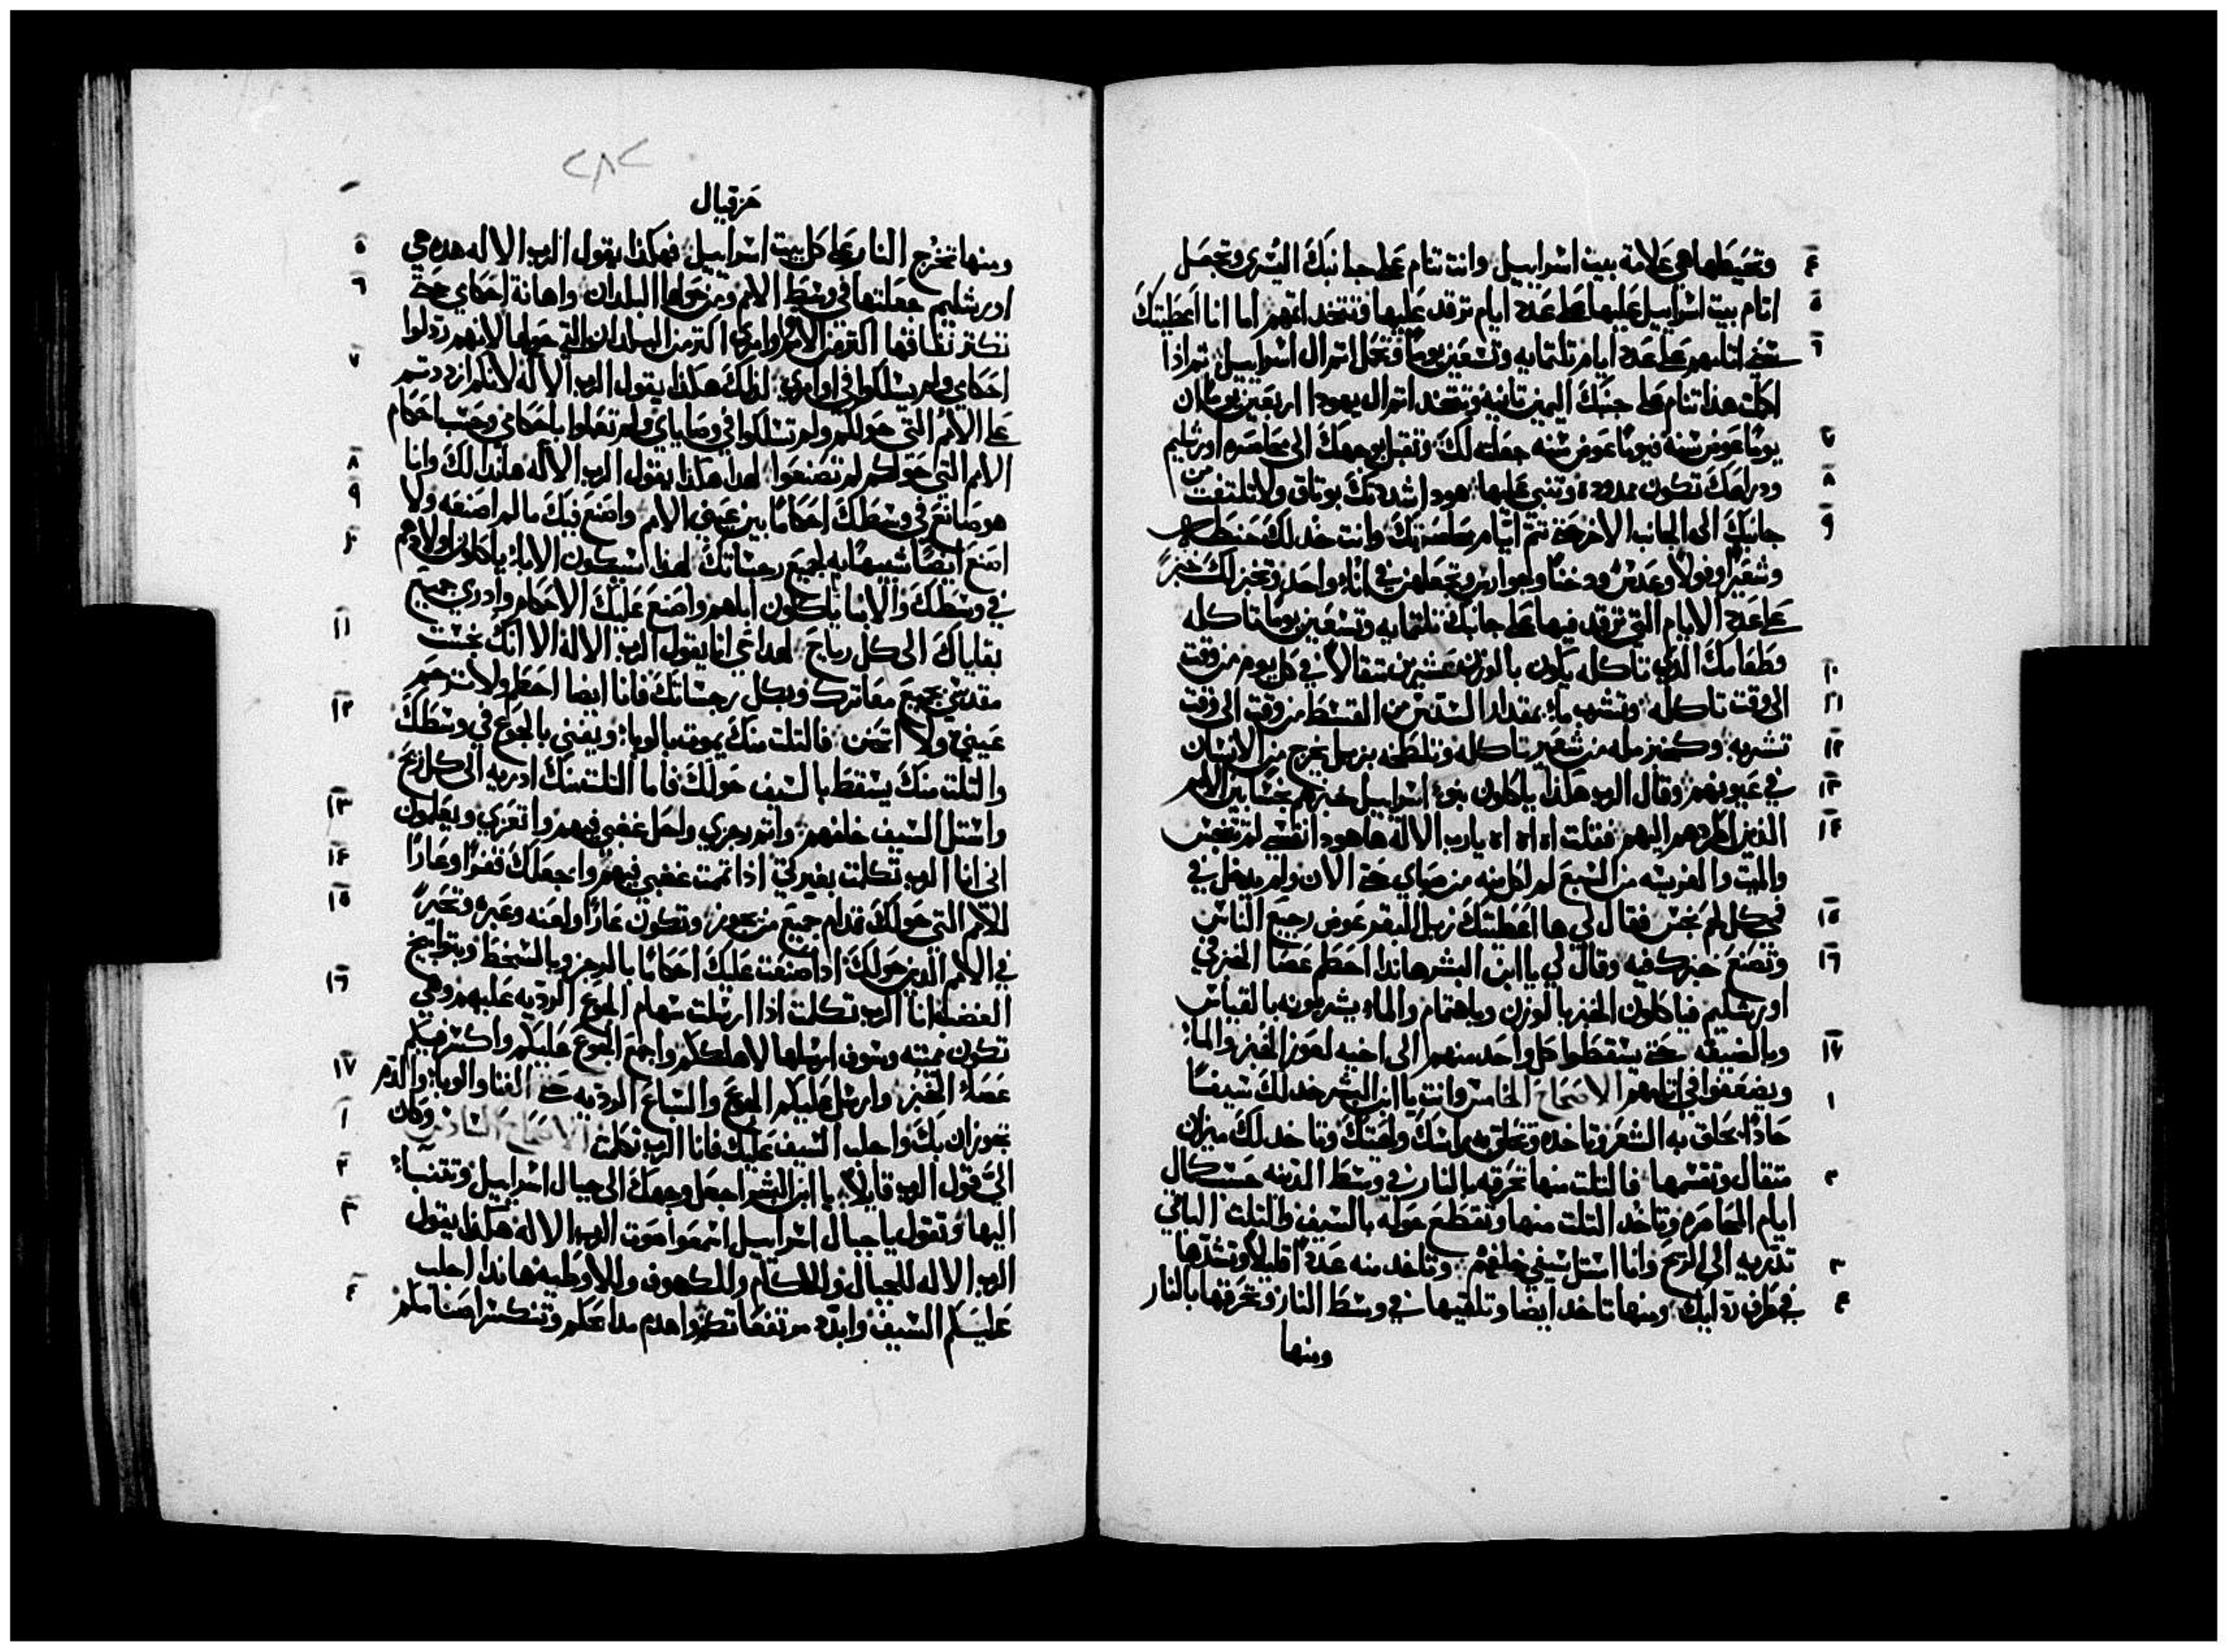 وتحيطها هي علامة بيت اسراييل وانت تنام على جانبك اليسرى وتجعل ٤
اتام بيت اسراييل عليها على عدد ايام ترقد عليها وتتخد اتمهم اما انا اعطيتك ٥
سني اتامهم على عدد ايام تلتمايه وتسعين يوما وتحمل اتم ال اسراييل ثم اذا ٦
اكملت هذا تنام على جنبك اليمين تانيه وتتخد اتم ال يهودا اربعين يوما لان
يوما عوض سنه فيوما عوض سنه جعلته لك وتقبل بوجهك الى محاصره اورشليم ٧
ودراعك تكون ممدوده وتنبي عليها هودا شددتك بوتاق ولا تلتفت من ٨
جانبك الى الجانب الاخر حتى تتم ايام محاصرتك وانت خد لك حنطه ٩
وشعيرا وفولا وعدس ودخنا وجوارس وتجعلهن في انا واحد وتخبز لك خبزا
على عدد الايام التي ترقد فيها على جانبك تلتمايه وتسعين يوما تاكله
وطعامك الذي تاكله يكون بالوزن عشرين متقالا في كل يوم من وقت ١٠
الى وقت تاكله وتشرب ماء بمقدار السدس من القسط من وقت الى وقت ١١
تشربه وكخبز مله من شعير تاكله وتلطخه بزبل يخرج من الانسان ١٢
في عيونهم وقال الرب هكذا ياكلون بنو اسراييل خبزهم نجسا بين الامم ١٣
الذين اطردهم اليهم فقلت اه اه اه يا رب الاله ها هودا نفسي لم تنجس ١٤
والميت والفريسه من السبع لم اكل منه من صباي حتى الان ولم يدخل في
في كل لحم نجس فقال لي ها اعطيتك زبل البقر عوض رجيع الناس ١٥
وتصنع خبزك فيه وقال لي يا ابن البشر هاندا احطم عصا الخبز في ١٦
اورشليم فياكلون الخبز بالوزن وباهتمام والماء يشربونه بالقياس
وبالضيقه حتى يسقطوا كل واحد منهم الى اخيه لعوز الخبز والماء ١٧
ويضعفوا في اتامهم الاصحاح الخامس وانت يا ابن البشر خد لك سيفا ١
حادا يحلق به الشعر وتاخده وتحلق به راسك ولحيتك وتاخد لك ميزان
متقال وتقسمها فالتلت منها تحرقه بالنار في وسط المدينه حسب كمال ٢
ايام المحاصره وتاخد التلت منها وتقطع حوله بالسيف والتلت الباقي
تدريه الى الريح وانا استل سيفي خلفهم وتاخد منه عددا قليلا وتشدها ٣
في طرف ردايك ومنها تاخد ايضا وتلقيها في وسط النار وتحرقها بالنار ٤
ومنها
٢٨٢
حزقيال
ومنها تخرج النار على كل بيت اسراييل فهكذا يقول الرب الاله هده هي ٥
اورشليم جعلتها في وسط الامم ومن حولها البلدان واهانة احكامي حتى ٦
تكتر نفاقها اكتر من الامم واوامري اكتر من البلدان التي حولها لانهم ردلوا
احكامي ولم يسلكوا في اوامري لذلك هكذا يقول الرب الاله لانكم ازددتم ٧
على الامم التي حولكم ولم تسلكوا في وصاياي ولم تعملوا باحكامي وحسب احكام
الامم التي حولكم لم تصنعوا لهدا هكذا يقول الرب الاله هاندا لك وانا ٨
هو صانع في وسطك احكاما بين عيون الامم واصنع فيك ما لم اصنعه ولا ٩
اصنع ايضا شبيها به لجميع رجساتك لهذا سيكون الاباء ياكلون اولادهم ١٠
في وسطك والابنا ياكلون اباهم واصنع عليك الاحكام وادري جميع
بقاياك الى كل رياح لهدا حي انا يقول الرب الاله الا انك نجست ١١
مقدسي بجميع معاترك وبكل رجساتك فانا ايضا احطم ولا تترحم
عيني ولا اتحنن فالتلت منك يموت بالوبا ويفني بالجوع في وسطك ١٢
والتلت منك يسقط بالسيف حولك فاما التلت منك ادريه الى كل ريح
واستل السيف خلفهم واتم رجزي واحل غضبي فيهم واتعزي ويعلمون ١٣
اني انا الرب تكلمت بغيرتي اذا تممت غضبي فيهم واجعلك قفرا وعارا ١٤
للامم التي حولك قدام جميع من يجوز وتكون عارا ولعنه وعبره وتحيرا ١٥
في الامم الدين حولك اذا صنعت عليك احكاما بالرجز وبالسخط وبتوابيخ
الغضب انا الرب تكلمت اذا ارسلت سهام الجوع الرديه عليهم وهي ١٦
تكون مميته وسوف ارسلها لاهلككم واجمع الجوع عليكم واكسر فيكم
عصاء الخبز وارسل عليكم الجوع والسباع الرديه حتى الفنا والوبا والدم ١٧
تجوزان بك واجلب السيف عليك فانا الرب تكلمت الاصحاح السادس وكان ١
الي قول الرب قايلا يا ابن البشر اجعل وجهك الى جبال اسراييل وتتنبا ٢
اليها وتقول يا جبال اسراييل اسمعوا صوت الرب الاله هكذا يقول ٣
الرب الاله للجبال وللاكام وللكهوف وللاوطيه هاندا اجلب
عليكم السيف وابدد مرتفعاتكم واهدم مدابحكم وتنكسر اصنامكم ٤